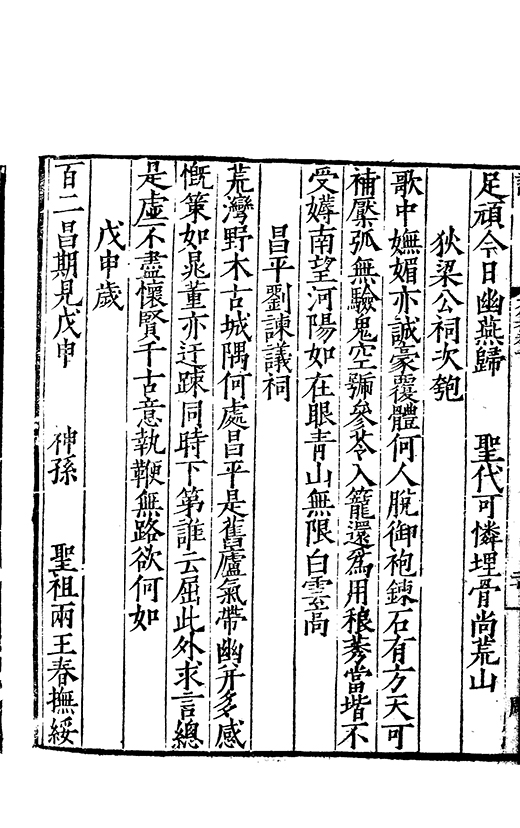 足頑今日幽燕歸　聖代可憐埋骨尚荒山
狄梁公祠次匏
歌中嫵媚亦誠豪覆體何人脫御袍鍊石有方天可
補壓弧無驗鬼空號參苓入籠還爲用稂莠當堦不
受嫥南望河陽如在眼青山無限白雲高
昌平劉諫議祠
荒灣野木古城隅何處昌平是舊廬氣帶幽并多感
慨策如晁董亦迂踈同時下第誰云屈此外求言總
是虛不盡懷賢千古意執鞭無路欲何如
戊申歲
百二昌期見戊申　神孫　聖祖兩王春撫綏